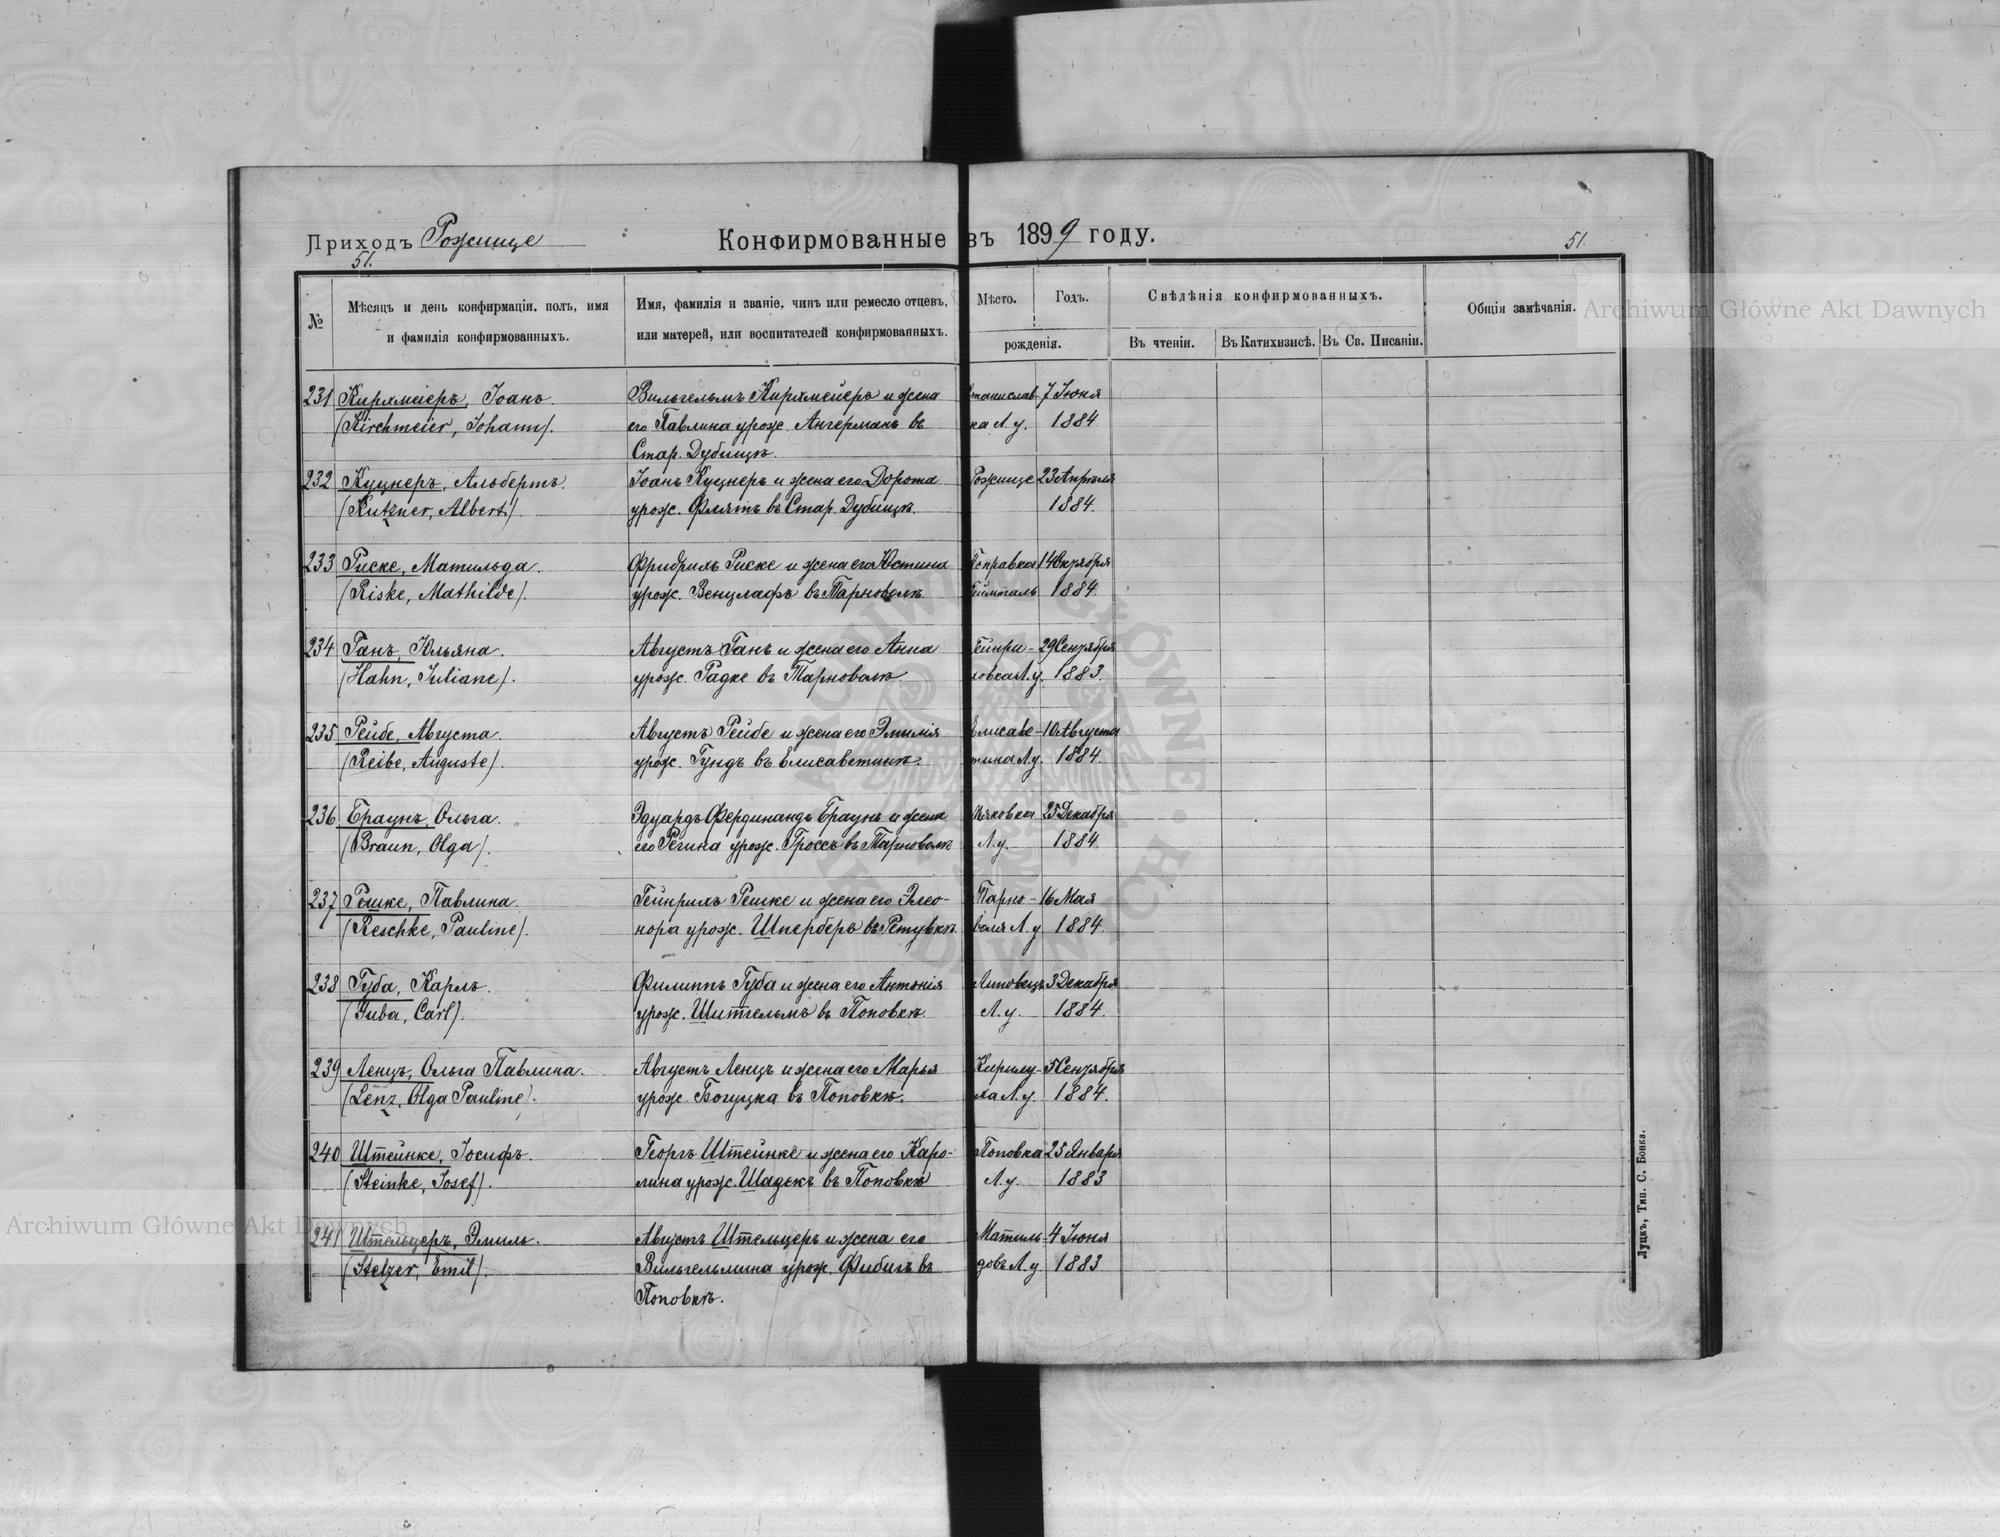 Приходъ Рожище
Конфирмованные въ 1899 году.
51.
51.
№
Мѣсяцъ и день конфирмаціи, полъ, имя
и фамилія конфирмованныхъ.
Имя, фамилія и званіе, чинъ или ремесло отцевъ,
или матерей, или воспитателей конфирмованныхъ.
Мѣсто.
Годъ.
рожденія.
Свѣдѣнія конфирмованныхъ.
Въ чтеніи.
Въ Катихизисѣ.
Въ Св. Писаніи.
Общія замѣчанія.
231 Кирхмейеръ, Іоанъ. Вильгельмъ Кирхмейеръ и жена Станислав- 7 Іюня
(Kirchmeier, Johann). его Павлина урож. Ангерманъ въ ка Л. у. 1884
Стар. Дубищѣ.
232 Куцнеръ, Альбертъ. Іоанъ Куцнеръ и жена его Дорота Рожище 23 Апрѣля
(Kutzner, Albert). урож. Флятъ въ Стар. Дубищѣ. 1884.
233 Риске, Матильда. Фридрихъ Риске и жена его Юстина 14 Октября
(Riske, Mathilde). урож. Венцлафъ въ Тарноволѣ. 1884
234 Ганъ, Юльяна. Августъ Ганъ и жена его Анна Гейнри- 29 Сентября
(Hahn, Juliane). урож. Радке въ Тарноволѣ. ховка Л. у. 1883.
235 Рейбе, Августа. Августъ Рейбе и жена его Эмилія Елисаве- 10 Августа
(Reibe, Auguste). урож. Гундъ въ Елисаветинѣ. тина Л. у. 1884.
236 Браунъ, Ольга. Эдуардъ Фердинандъ Браунъ и жена 25 Декабря
(Braun, Olga). его Регина урож. Гроссъ въ Тарноволѣ Л. у. 1884.
237 Решке, Павлина. Гейнрихъ Решке и жена его Элео- Тарно- 16 Мая
(Reschke, Pauline). нора урож. Шперберъ въ воля Л. у. 1884.
238 Губа, Карлъ. Филиппъ Губа и жена его Антонія Липовецъ 3 Декабря
(Guba, Carl). урож. Шитгельмъ въ Поповкѣ. Л. у. 1884.
239 Ленцъ, Ольга Павлина. Августъ Ленцъ и жена его Марья Кирилу- 5 Сентября
(Lenz, Olga Pauline). урож. Богуцка въ Поповкѣ. ха Л. у. 1884.
240 Штейнке, Іосифъ. Георгъ Штейнке и жена его Каро- Поповка 25 Января
(Steinke, Josef). лина урож. Шадекъ въ Поповкѣ Л. у. 1883
241 Штельцеръ, Эмиль. Августъ Штельцеръ и жена его Матиль- 4 Іюня
(Stelzer, Emil). Вильгельмина урож. Фибигъ въ довъ Л. у. 1883
Поповкѣ.
Луцкъ, Тип. С. Бонка.
Archiwum Główne Akt Dawnych
Archiwum Główne Akt Dawnych